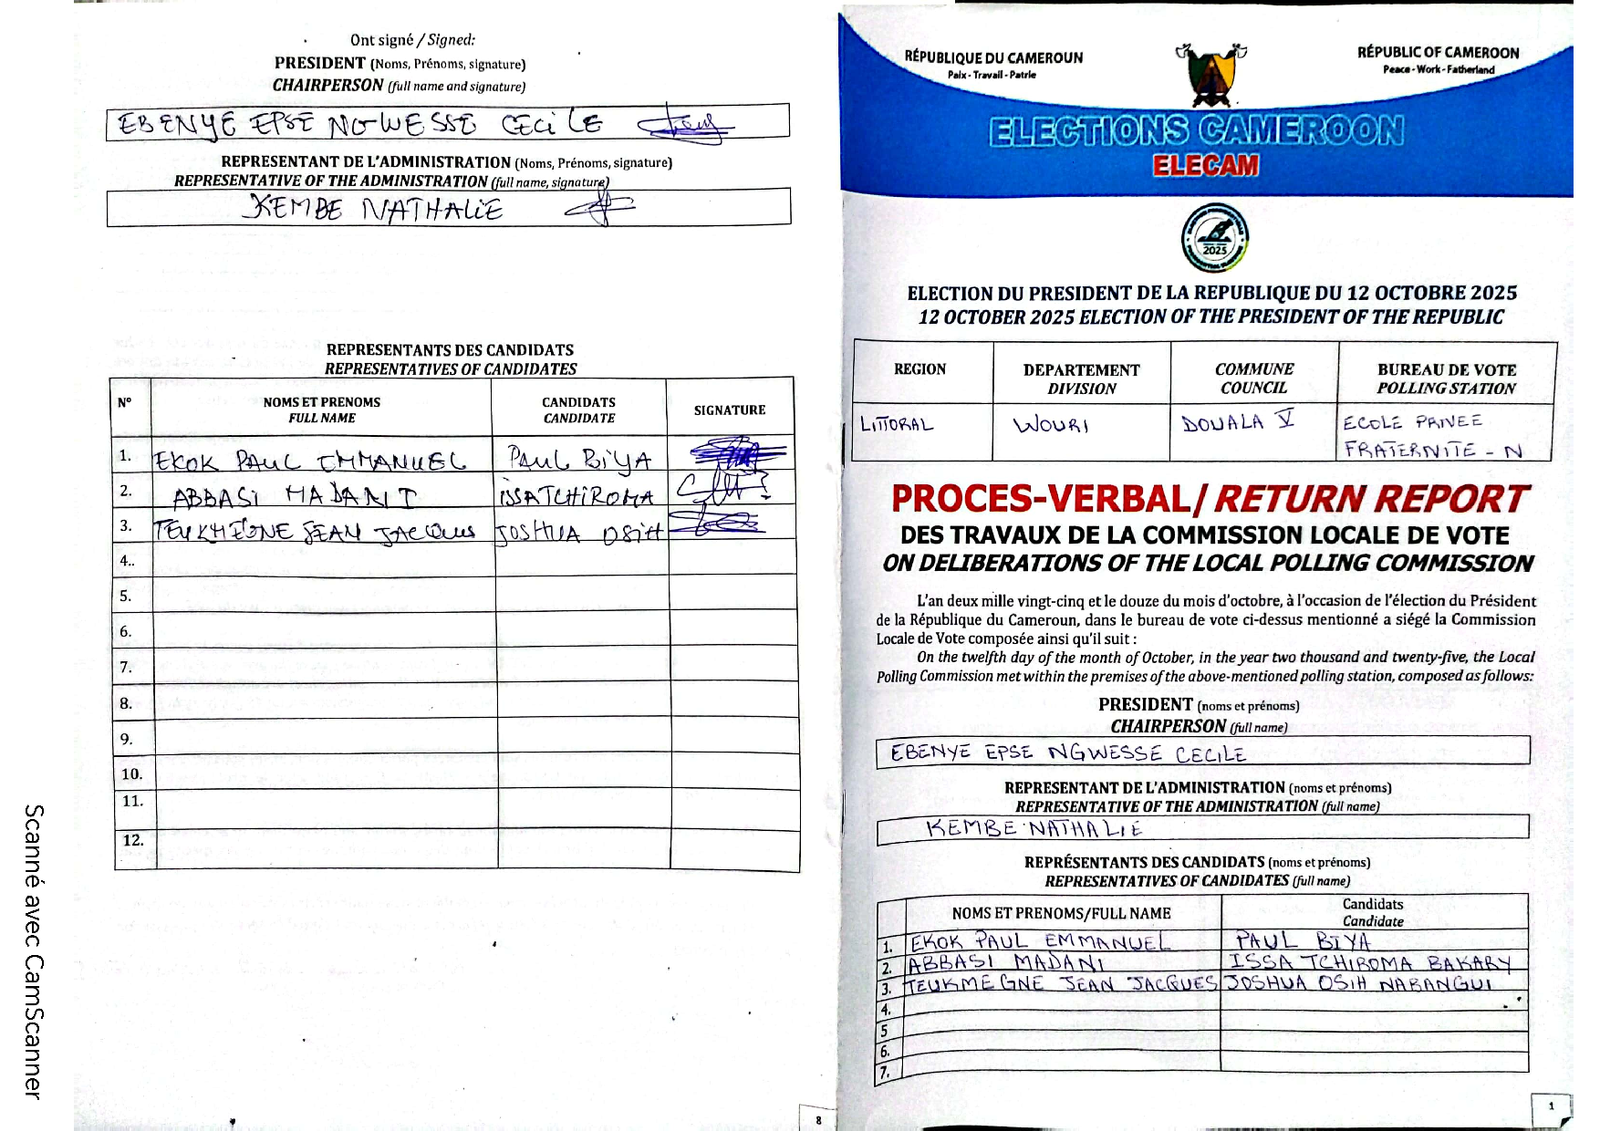 Ont signé / Signed:
PRESIDENT (Noms, Prénoms, signature)
CHAIRPERSON (full name and signature)
EBENYE EPSE NGWESSE CECILE
REPRESENTANT DE L'ADMINISTRATION (Noms, Prénoms, signature)
REPRESENTATIVE OF THE ADMINISTRATION (full name, signature)
KEMBE NATHALIE
REPRESENTANTS DES CANDIDATS
REPRESENTATIVES OF CANDIDATES
N° NOMS ET PRENOMS FULL NAME CANDIDATS CANDIDATE SIGNATURE
1. EKOK PAUL EMMANUEL PAUL BIYA
2. ABBASI MADANI ISSATCHIROMA
3. TEUKMEGNE JEAN JACQUES JOSHUA OSIH
4..
5.
6.
7.
8.
9.
10.
11.
12.
8
Scanné avec CamScanner
RÉPUBLIQUE DU CAMEROUN
Paix - Travail - Patrie
RÉPUBLIC OF CAMEROON
Peace - Work - Fatherland
ELECTIONS CAMEROON
ELECAM
2025
ELECTION DU PRESIDENT DE LA REPUBLIQUE DU 12 OCTOBRE 2025
12 OCTOBER 2025 ELECTION OF THE PRESIDENT OF THE REPUBLIC
REGION DEPARTEMENT DIVISION COMMUNE COUNCIL BUREAU DE VOTE POLLING STATION
LITTORAL WOURI DOUALA V ECOLE PRIVEE
FRATERNITE - N
PROCES-VERBAL/ RETURN REPORT
DES TRAVAUX DE LA COMMISSION LOCALE DE VOTE
ON DELIBERATIONS OF THE LOCAL POLLING COMMISSION
L'an deux mille vingt-cinq et le douze du mois d'octobre, à l'occasion de l'élection du Président
de la République du Cameroun, dans le bureau de vote ci-dessus mentionné a siégé la Commission
Locale de Vote composée ainsi qu'il suit :
On the twelfth day of the month of October, in the year two thousand and twenty-five, the Local
Polling Commission met within the premises of the above-mentioned polling station, composed as follows:
PRESIDENT (noms et prénoms)
CHAIRPERSON (full name)
EBENYE EPSE NGWESSE CECILE
REPRESENTANT DE L'ADMINISTRATION (noms et prénoms)
REPRESENTATIVE OF THE ADMINISTRATION (full name)
KEMBE NATHALIE
REPRÉSENTANTS DES CANDIDATS (noms et prénoms)
REPRESENTATIVES OF CANDIDATES (full name)
NOMS ET PRENOMS/FULL NAME Candidats Candidate
1. EKOK PAUL EMMANUEL PAUL BIYA
2. ABBASI MADANI ISSA TCHIROMA BAKARY
3. TEUKMEGNE JEAN JACQUES JOSHUA OSIH NABANGUI
4.
5
6.
7.
1